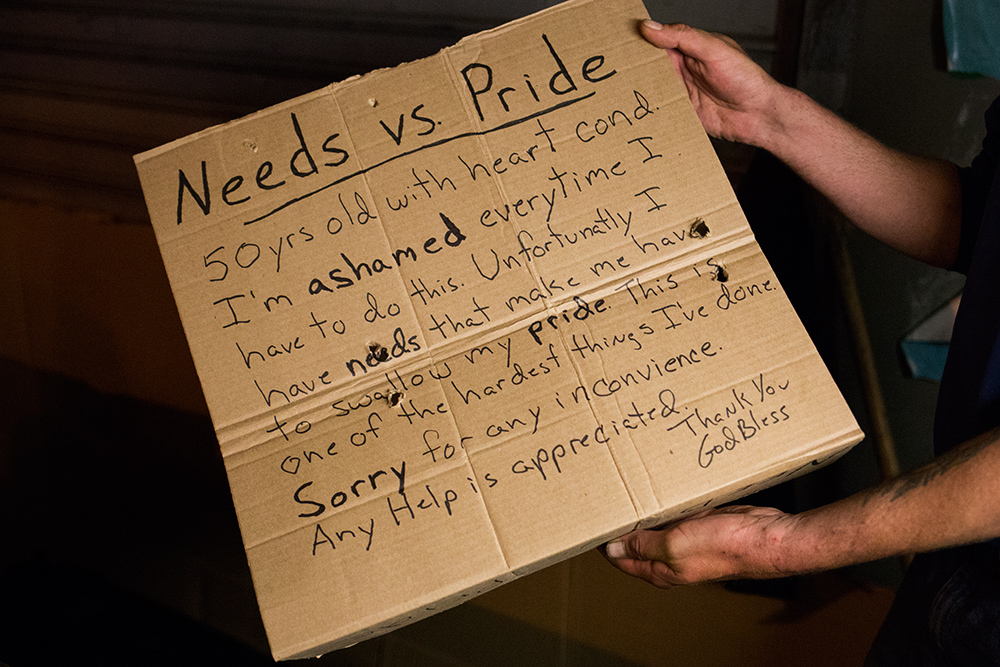 Needs vs. Pride
50 yrs old with heart cond.
I'm ashamed everytime I
have to do this. Unfortunatly I
have needs that make me have
to swallow my pride. This is
one of the hardest things I've done.
Sorry for any inconvience.
Any Help is appreciated.
Thank You
God Bless